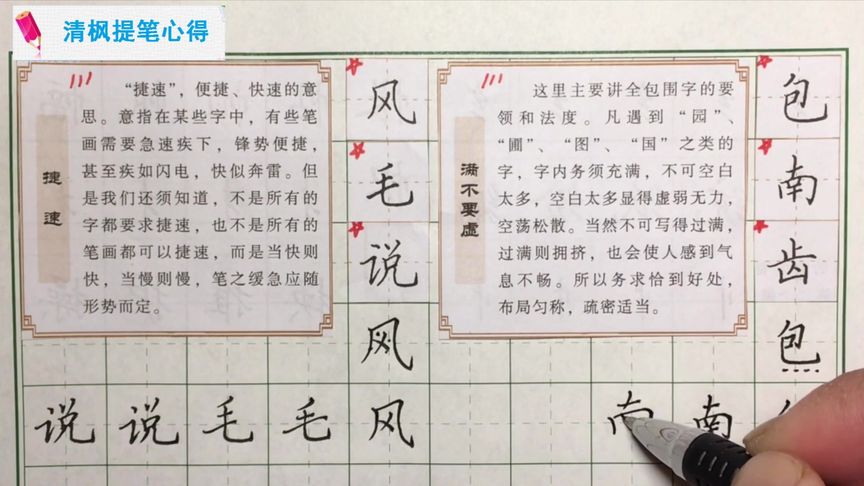 清枫提笔心得
捷速
“捷速”，便捷、快速的意
思。意指在某些字中，有些笔
画需要急速疾下，锋势便捷，
甚至疾如闪电，快似奔雷。但
是我们还须知道，不是所有的
字都要求捷速，也不是所有的
笔画都可以捷速，而是当快则
快，当慢则慢，笔之缓急应随
形势而定。
风
毛
说
风
满不要虚
这里主要讲全包围字的要
领和法度。凡遇到“园”、
“圃”、“图”、“国”之类的
字，字内务须充满，不可空白
太多，空白太多显得虚弱无力，
空荡松散。当然不可写得过满，
过满则拥挤，也会使人感到气
息不畅。所以务求恰到好处，
布局匀称，疏密适当。
包
南
齿
包
说 说 毛 毛 风 南